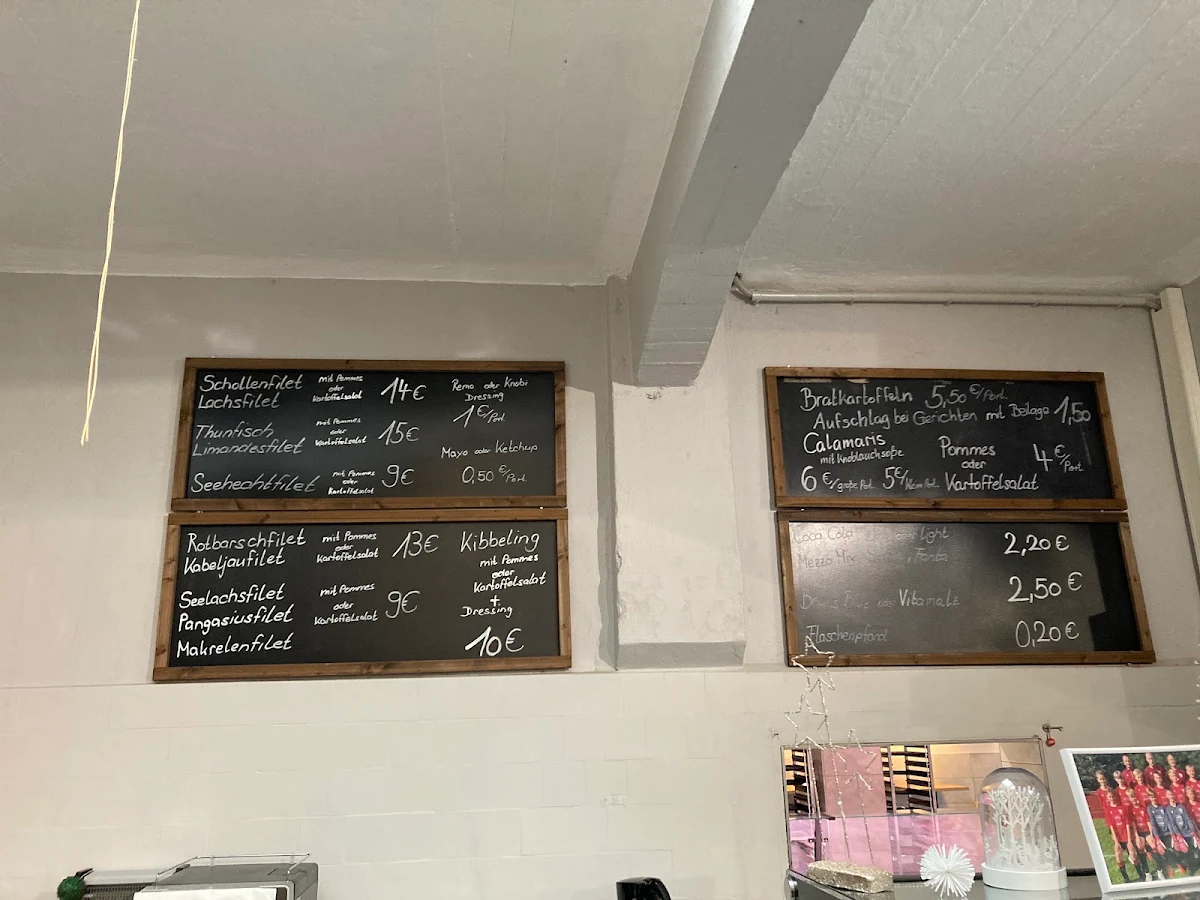 Schollenfilet
Lachsfilet
mit Pommes
oder
Kartoffelsalat
14€
Remo oder Knobi
Dressing
1€/Port.
Thunfisch
Limandesfilet
mit Pommes
oder
Kartoffelsalat
15€
Mayo oder Ketchup
0,50€/Port.
Seehechtfilet
mit Pommes
oder
Kartoffelsalat
9€
Rotbarschfilet
Kabeljaufilet
mit Pommes
oder
Kartoffelsalat
13€
Seelachsfilet
Pangasiusfilet
Makrelenfilet
mit Pommes
oder
Kartoffelsalat
9€
Kibbeling
mit Pommes
oder
Kartoffelsalat
+
Dressing
10€
Bratkartoffeln 5,50€/Port.
Aufschlag bei Gerichten mit Beilage 1,50
Calamaris
mit Knoblauchsoße
6€/große Port. 5€/kleine Port.
Pommes
oder
Kartoffelsalat
4€/Port.
Coca Cola light 2,20€
Mezzo Mix Fanta
oder Vitamalz 2,50€
Flaschenpfand 0,20€